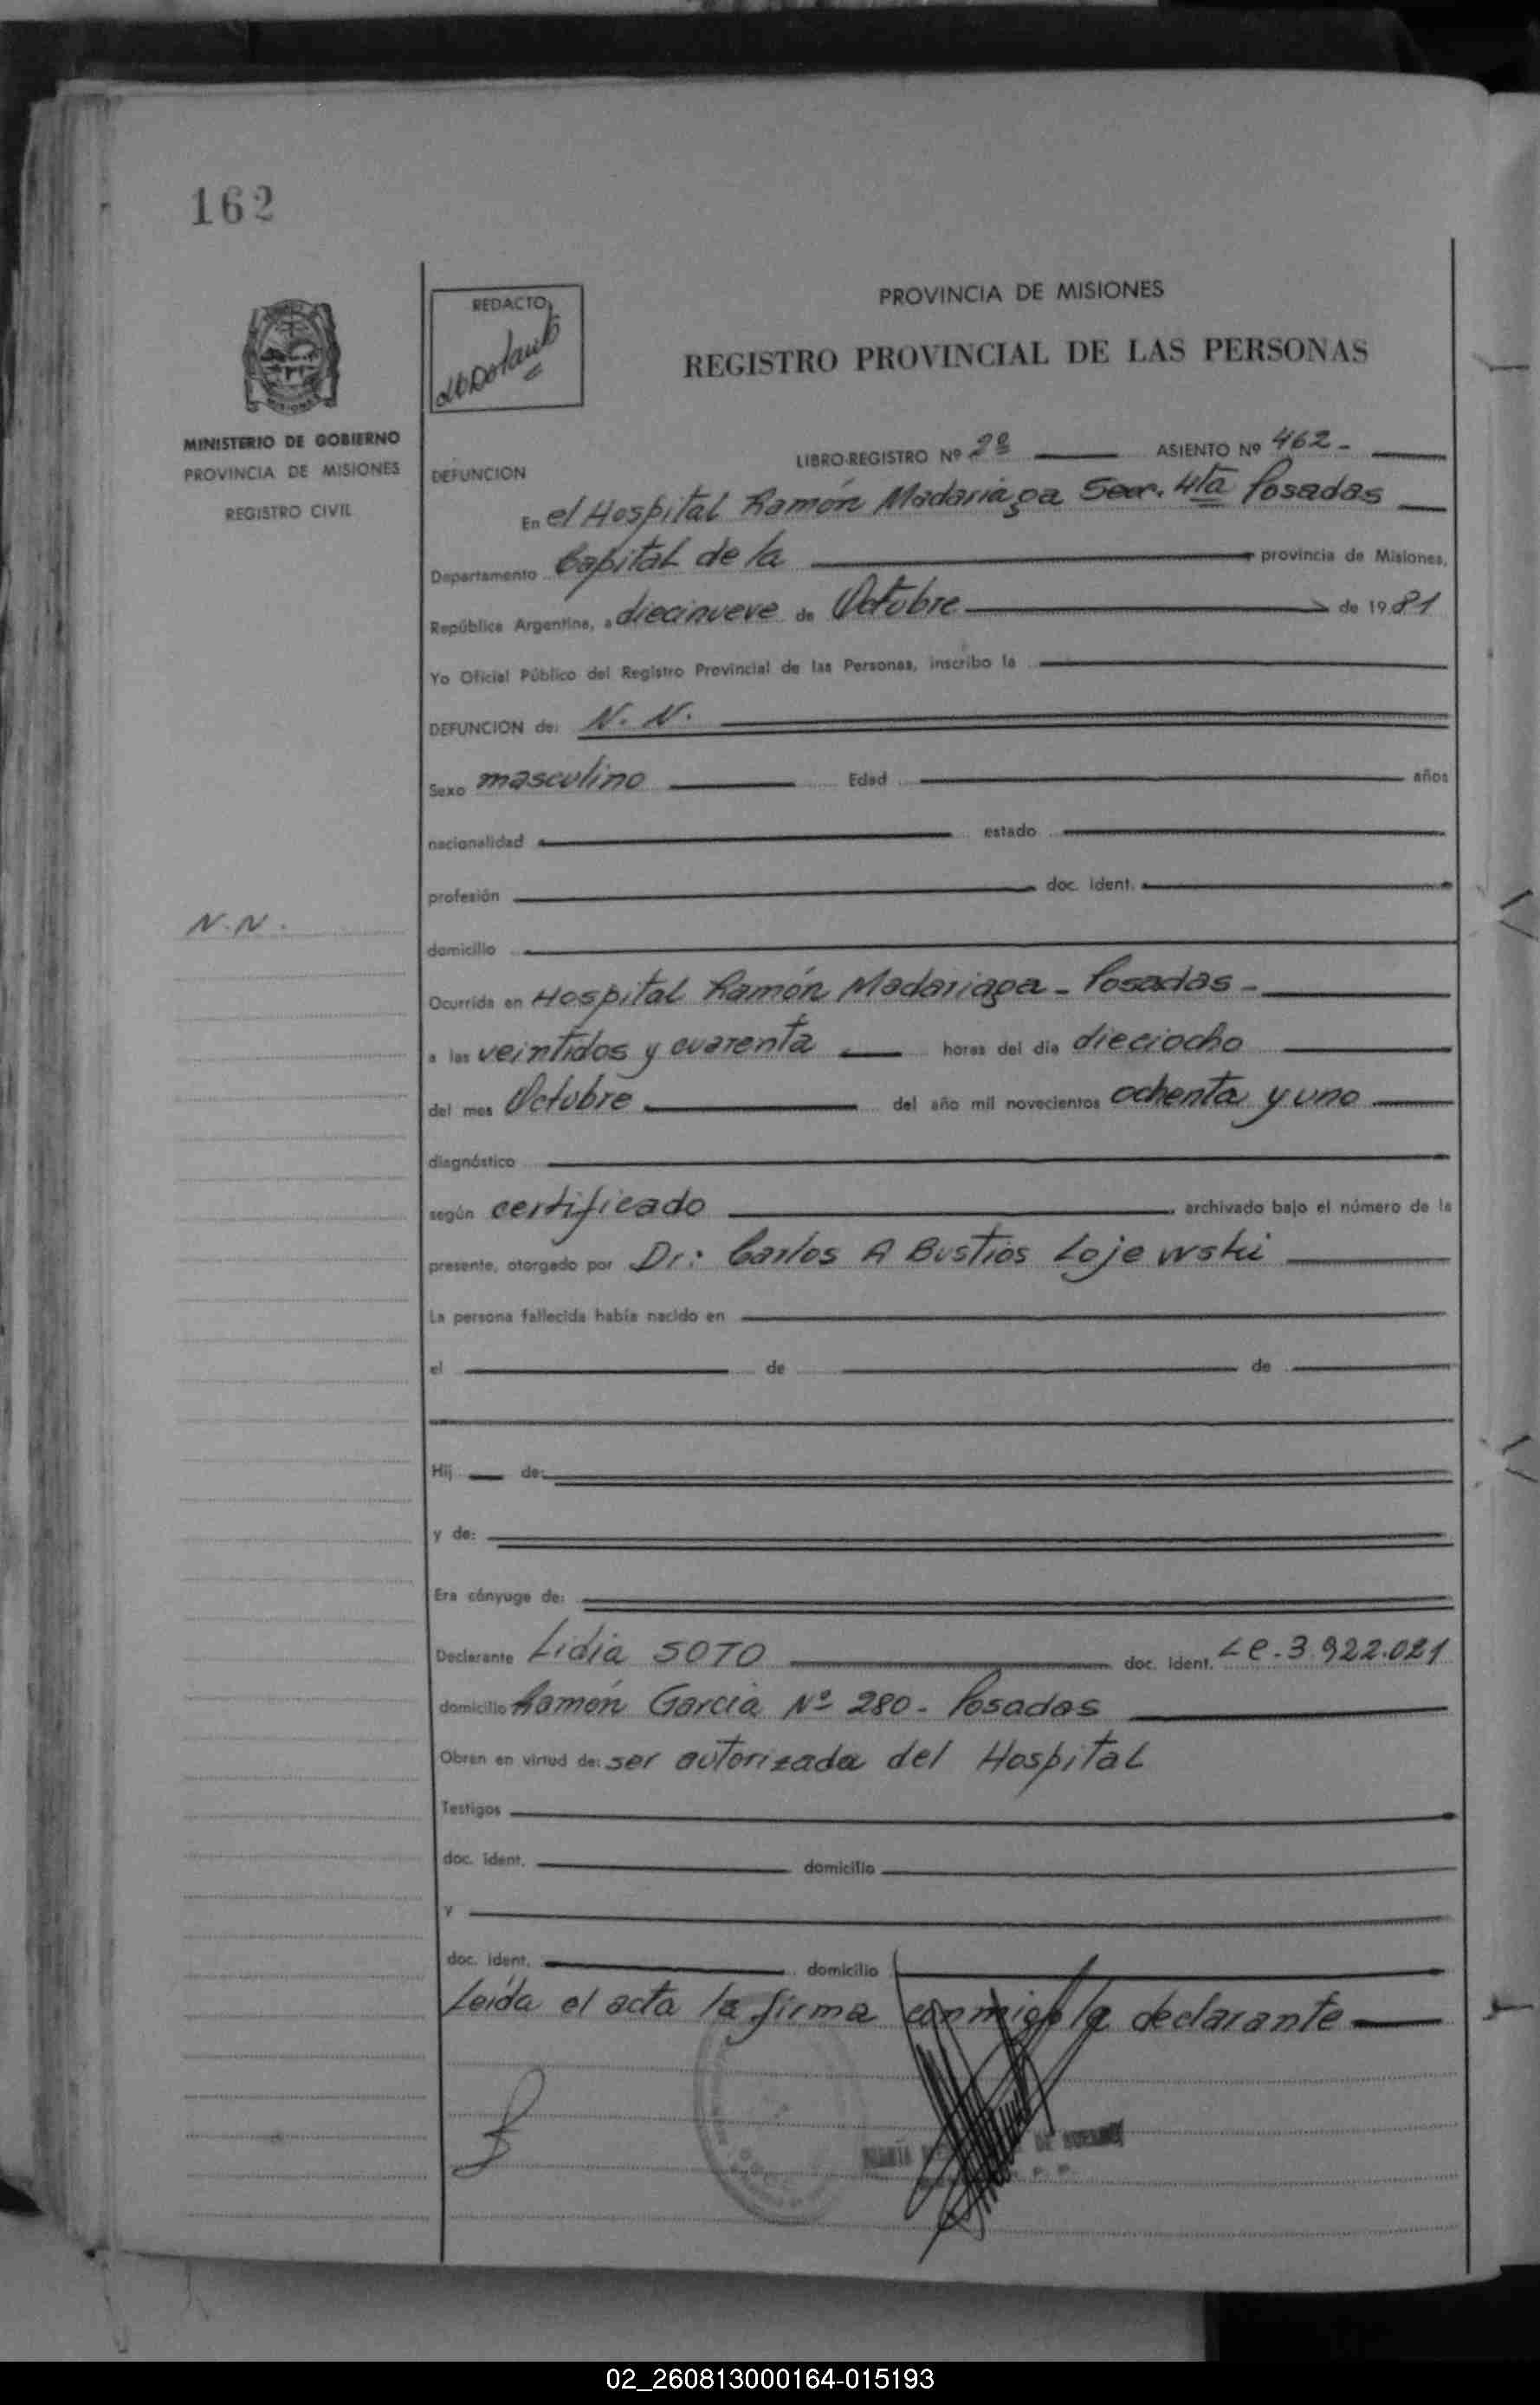 162
MINISTERIO DE GOBIERNO
PROVINCIA DE MISIONES
REGISTRO CIVIL
REDACTO
PROVINCIA DE MISIONES
REGISTRO PROVINCIAL DE LAS PERSONAS
LIBRO-REGISTRO Nº 2º ASIENTO Nº 462-
DEFUNCION
En el Hospital Ramón Madariaga Secc. 4ta Posadas
Departamento Capital de la provincia de Misiones,
República Argentina, a diecinueve de Octubre de 1981
Yo Oficial Público del Registro Provincial de las Personas, inscribo la
DEFUNCION de: N. N.
Sexo masculino Edad años
nacionalidad estado
profesión doc. ident.
N.N.
domicilio
Ocurrida en Hospital Ramón Madariaga - Posadas -
a las veintidos y cuarenta horas del día dieciocho
del mes Octubre del año mil novecientos ochenta y uno
diagnóstico
según certificado archivado bajo el número de la
presente, otorgado por Dr: Carlos A Bustios Lojewski
La persona fallecida había nacido en
el de de
Hij de:
y de:
Era cónyuge de:
Declarante Lidia SOTO doc. ident. Le. 3.922.021
domicilio Ramón Garcia Nº 280 - Posadas
Obran en virtud de: ser autorizada del Hospital
Testigos
doc. ident. domicilio
y
doc. ident. domicilio
Leída el acta la firma conmigo la declarante
02_260813000164-015193